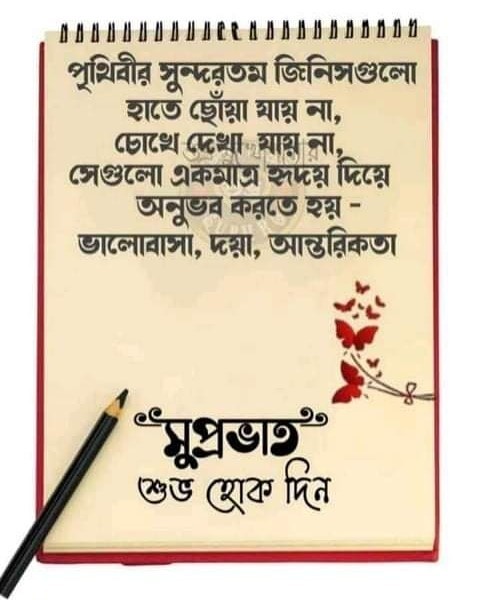 পৃথিবীর সুন্দরতম জিনিসগুলো
হাতে ছোঁয়া যায় না,
চোখে দেখা যায় না,
সেগুলো একমাত্র হৃদয় দিয়ে
অনুভব করতে হয় -
ভালোবাসা, দয়া, আন্তরিকতা
সুপ্রভাত
শুভ হোক দিন